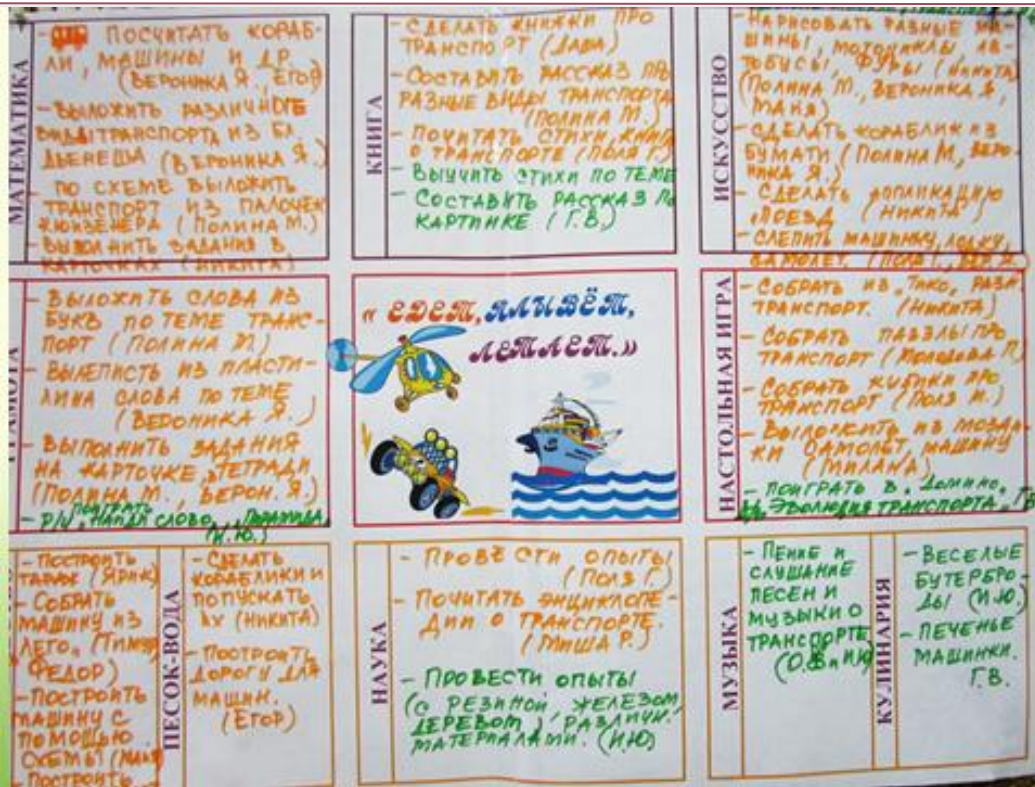 МАТЕМАТИКА
- ПОСЧИТАТЬ КОРАБ-
ЛИ, МАШИНЫ И ДР.
(ВЕРОНИКА Я., ЕГОР)
- ВЫЛОЖИТЬ РАЗЛИЧНЫЕ
ВИДЫ ТРАНСПОРТА ИЗ БЛ.
ДЬЕНЕША (ВЕРОНИКА Я.)
- ПО СХЕМЕ ВЫЛОЖИТЬ
ТРАНСПОРТ ИЗ ПАЛОЧЕК
КЮИЗЕНЕРА (ПОЛИНА М.)
- ВЫПОЛНИТЬ ЗАДАНИЯ В
КАРТОЧКАХ (НИКИТА)
КНИГА
- СДЕЛАТЬ КНИЖКИ ПРО
ТРАНСПОРТ (ДАВА)
- СОСТАВИТЬ РАССКАЗ ПРО
РАЗНЫЕ ВИДЫ ТРАНСПОРТА
(ПОЛИНА М.)
- ПОЧИТАТЬ СТИХИ, КНИГИ
О ТРАНСПОРТЕ (ПОЛЯ Г.)
- ВЫУЧИТЬ СТИХИ ПО ТЕМЕ
- СОСТАВИТЬ РАССКАЗ ПО
КАРТИНКЕ (Г.В.)
ИСКУССТВО
- НАРИСОВАТЬ РАЗНЫЕ МА-
ШИНЫ, МОТОЦИКЛЫ, АВ-
ТОБУСЫ, ФУРЫ (НИКИТА)
(ПОЛИНА М., ВЕРОНИКА Я.,
МАНЯ)
- СДЕЛАТЬ КОРАБЛИК ИЗ
БУМАГИ (ПОЛИНА М., ВЕРО-
НИКА Я.)
- СДЕЛАТЬ АППЛИКАЦИЮ
„ПОЕЗД" (НИКИТА)
- СЛЕПИТЬ МАШИНКУ, ЛОДКУ,
САМОЛЕТ. (ПОЛЯ Г.,
ГРАМОТА
- ВЫЛОЖИТЬ СЛОВА ИЗ
БУКВ ПО ТЕМЕ ТРАНС-
ПОРТ (ПОЛИНА М.)
- ВЫЛЕПИСТЬ ИЗ ПЛАСТИ-
ЛИНА СЛОВА ПО ТЕМЕ
(ВЕРОНИКА Я.)
- ВЫПОЛНИТЬ ЗАДАНИЯ
НА КАРТОЧКЕ, В ТЕТРАДИ
(ПОЛИНА М., ВЕРОН. Я.)
ПОИГРАТЬ
НАЙДИ СЛОВО
(И.Ю.)
« ЕДЕТ, ПЛЫВЁТ,
ЛЕТАЕТ.»
НАСТОЛЬНАЯ ИГРА
- СОБРАТЬ ИЗ „ТИКО" РАЗН.
ТРАНСПОРТ. (НИКИТА)
- СОБРАТЬ ПАЗЗЛЫ ПРО
ТРАНСПОРТ
- СОБРАТЬ КУБИКИ ПРО
ТРАНСПОРТ (ПОЛЯ М.)
- ВЫЛОЖИТЬ ИЗ МОЗАИ-
КИ САМОЛЕТ, МАШИНУ
(МИЛАНА)
- ПОИГРАТЬ В „ДОМИНО"
ЭВОЛЮЦИЯ ТРАНСПОРТА"
- ПОСТРОИТЬ
(ЯРИК)
- СОБРАТЬ
МАШИНУ ИЗ
„ЛЕГО" (ТИМУР,
ФЕДОР)
- ПОСТРОИТЬ
МАШИНУ С
ПОМОЩЬЮ
СХЕМЫ
- ПОСТРОИТЬ
ПЕСОК-ВОДА
- СДЕЛАТЬ
КОРАБЛИКИ И
ПОПУСКАТЬ
ИХ (НИКИТА)
- ПОСТРОИТЬ
ДОРОГУ ДЛЯ
МАШИН.
(ЕГОР)
НАУКА
- ПРОВЕСТИ ОПЫТЫ
(ПОЛЯ Г.)
- ПОЧИТАТЬ ЭНЦИКЛОПЕ-
ДИИ О ТРАНСПОРТЕ.
(МИША Р.)
- ПРОВЕСТИ ОПЫТЫ
(С РЕЗИНОЙ, ЖЕЛЕЗОМ,
ДЕРЕВОМ) РАЗЛИЧН.
МАТЕРИАЛАМИ. (И.Ю)
МУЗЫКА
- ПЕНИЕ И
СЛУШАНИЕ
ПЕСЕН И
МУЗЫКИ О
ТРАНСПОРТЕ
КУЛИНАРИЯ
- ВЕСЕЛЫЕ
БУТЕРБРО-
ДЫ (И.Ю.)
- ПЕЧЕНЬЕ
МАШИНКИ.
Г.В.